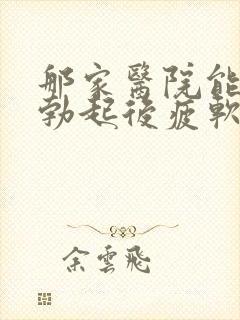 那家醫院能
勃起後疲軟
余雲飛